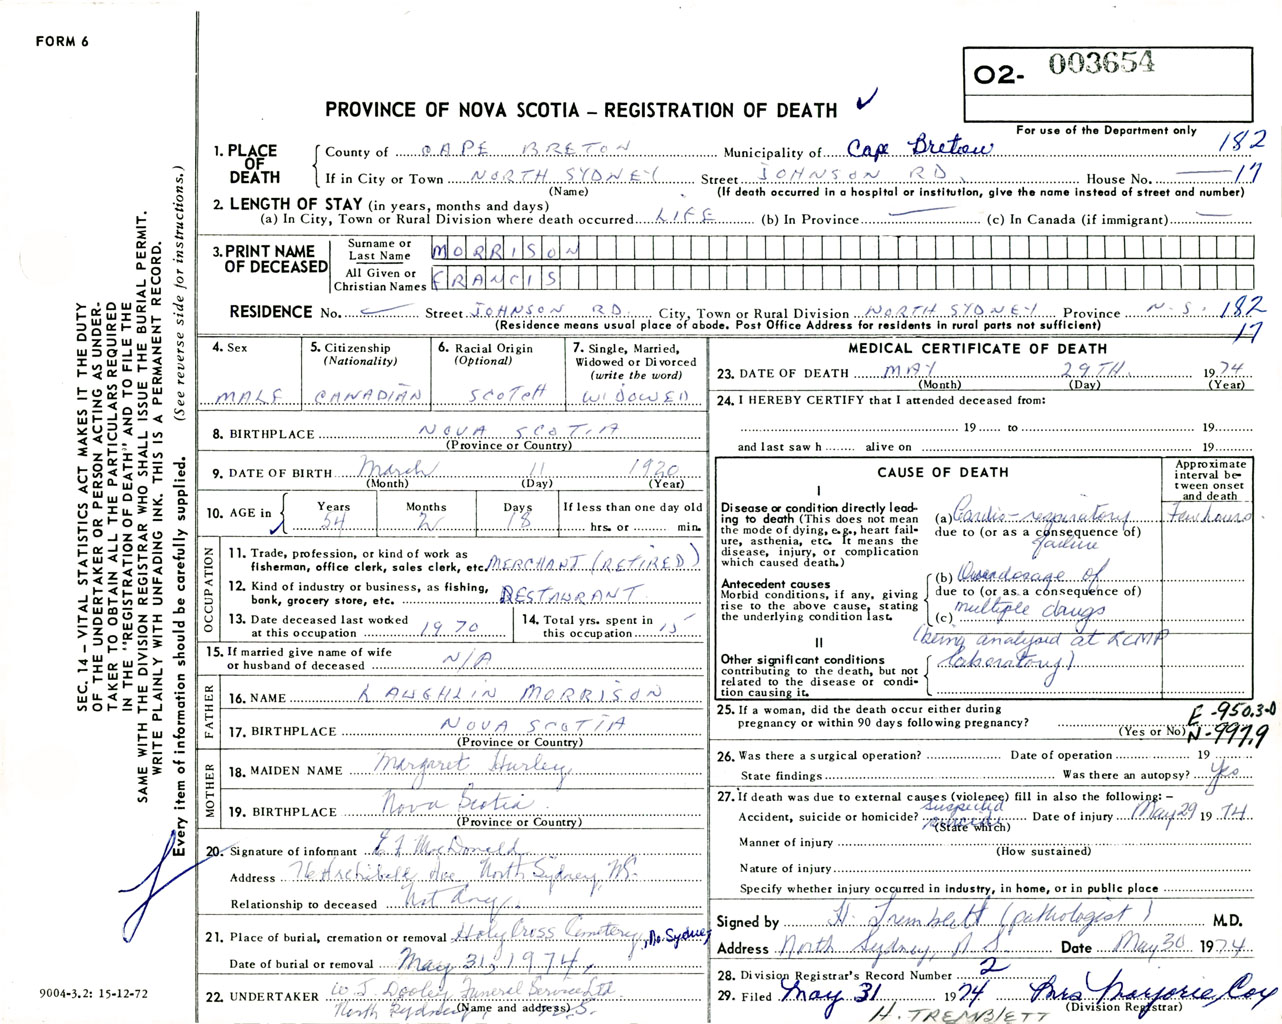 FORM 6
O2- 003654
PROVINCE OF NOVA SCOTIA – REGISTRATION OF DEATH ✓
For use of the Department only
SEC. 14 – VITAL STATISTICS ACT MAKES IT THE DUTY
OF THE UNDERTAKER OR PERSON ACTING AS UNDER-
TAKER TO OBTAIN ALL THE PARTICULARS REQUIRED
IN THE "REGISTRATION OF DEATH" AND TO FILE THE
SAME WITH THE DIVISION REGISTRAR WHO SHALL ISSUE THE BURIAL PERMIT.
WRITE PLAINLY WITH UNFADING INK. THIS IS A PERMANENT RECORD.
Every item of information should be carefully supplied. (See reverse side for instructions.)
1. PLACE OF DEATH
County of CAPE BRETON Municipality of Cape Breton 182
If in City or Town NORTH SYDNEY Street JOHNSON RD. House No. — 17
(Name) (If death occurred in a hospital or institution, give the name instead of street and number)
2. LENGTH OF STAY (in years, months and days)
(a) In City, Town or Rural Division where death occurred LIFE (b) In Province — (c) In Canada (if immigrant) —
3. PRINT NAME OF DECEASED
Surname or Last Name MORRISON
All Given or Christian Names FRANCIS
RESIDENCE No. — Street JOHNSON RD. City, Town or Rural Division NORTH SYDNEY Province N.S. 182
(Residence means usual place of abode. Post Office Address for residents in rural parts not sufficient) 17
4. Sex MALE
5. Citizenship (Nationality) CANADIAN
6. Racial Origin (Optional) SCOTCH
7. Single, Married, Widowed or Divorced (write the word) WIDOWED
8. BIRTHPLACE NOVA SCOTIA
(Province or Country)
9. DATE OF BIRTH March 11 1920
(Month) (Day) (Year)
10. AGE in Years 54 Months 2 Days 18 If less than one day old hrs. or min.
OCCUPATION
11. Trade, profession, or kind of work as fisherman, office clerk, sales clerk, etc. MERCHANT (RETIRED)
12. Kind of industry or business, as fishing, bank, grocery store, etc. RESTAURANT
13. Date deceased last worked at this occupation 1970
14. Total yrs. spent in this occupation 15
15. If married give name of wife or husband of deceased N/A
FATHER
16. NAME LAUGHLIN MORRISON
17. BIRTHPLACE NOVA SCOTIA
(Province or Country)
MOTHER
18. MAIDEN NAME Margaret Hurley
19. BIRTHPLACE Nova Scotia
(Province or Country)
20. Signature of informant E J MacDonald
Address Archibald Ave North Sydney, NS.
Relationship to deceased Not Any.
21. Place of burial, cremation or removal Holy Cross Cemetery, No. Sydney
Date of burial or removal May 31, 1974,
22. UNDERTAKER W J. Dooley Funeral Service Ltd
North Sydney, N.S.
(Name and address)
9004-3.2: 15-12-72
MEDICAL CERTIFICATE OF DEATH
23. DATE OF DEATH MAY 29TH 1974
(Month) (Day) (Year)
24. I HEREBY CERTIFY that I attended deceased from:
19 to 19
and last saw h alive on 19
CAUSE OF DEATH
Approximate interval between onset and death
I
Disease or condition directly leading to death (This does not mean the mode of dying, e.g., heart failure, asthenia, etc. It means the disease, injury, or complication which caused death.)
(a) Cardio-respiratory failure Few hours
due to (or as a consequence of)
Antecedent causes
Morbid conditions, if any, giving rise to the above cause, stating the underlying condition last.
(b) Overdosage of
due to (or as a consequence of)
(c) multiple drugs
(being analysed at RCMP
laboratory)
II
Other significant conditions contributing to the death, but not related to the disease or condition causing it.
25. If a woman, did the death occur either during pregnancy or within 90 days following pregnancy?
(Yes or No)
E-950.3-0
N-997.9
26. Was there a surgical operation? Date of operation 19
State findings Was there an autopsy? Yes
27. If death was due to external causes (violence) fill in also the following: –
Accident, suicide or homicide? suspected suicide Date of injury May 29 1974
(State which)
Manner of injury
(How sustained)
Nature of injury
Specify whether injury occurred in industry, in home, or in public place
Signed by H. Tremblett (pathologist) M.D.
Address North Sydney, N S. Date May 30 1974
28. Division Registrar's Record Number 2
29. Filed May 31 1974 Mrs Marjorie Cox
(Division Registrar)
H. TREMBLETT